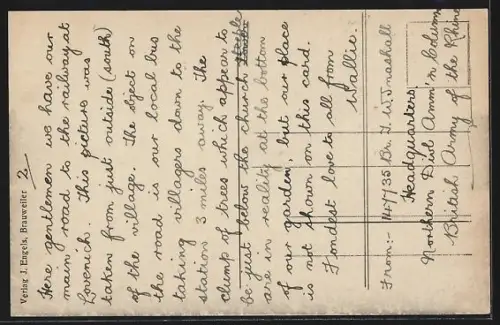 Verlag J. Engels, Brauweiler
2
Here gentlemen we have our
main road to the railway at
Lovenich. This picture was
taken from just outside (south)
of the village. The object on
the road is our local bus
taking villagers down to the
station 3 miles away. The
clump of trees which appear to
be just below the church steeple
are in reality at the bottom
of our garden, but our place
is not shown on this card.
Fondest love to all from
Wallie.
From:- 147735 Br. J. W.
Headquarters,
Northern Dist Amm'n Column
British Army of the Rhine